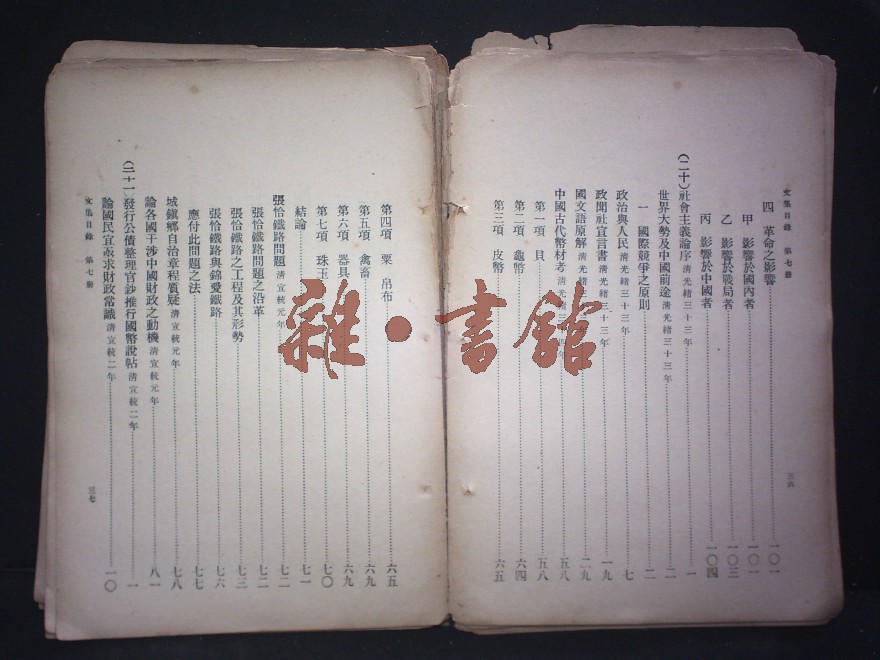 文集目錄 第七册
三六
四 革命之影響 一〇一
甲 影響於國內者 一〇一
乙 影響於戰局者 一〇三
丙 影響於中國者 一〇四
(二十)社會主義論序 清光緒三十三年 一
世界大勢及中國前途 清光緒三十三年 二
一 國際競爭之原則 二
政治與人民 清光緒三十三年 七
政聞社宣言書 清光緒三十三年 一九
國文語原解 清光緒三十三年 二九
中國古代幣材考 清光緒三十四年 五八
第一項 貝 五八
第二項 龜幣 六四
第三項 皮幣 六五
第四項 粟 帛布 六五
第五項 禽畜 六九
第六項 器具 六九
第七項 珠玉 七〇
結論 七一
張恰鐵路問題 清宣統元年 七二
張恰鐵路問題之沿革 七二
張恰鐵路之工程及其形勢 七三
張恰鐵路與錦愛鐵路 七六
應付此問題之法 七七
城鎮鄉自治章程質疑 清宣統元年 七八
論各國干涉中國財政之動機 清宣統元年 八一
(二十一)發行公債整理官鈔推行國幣說帖 清宣統二年 一
論國民宜亟求財政常識 清宣統二年 一〇
文集目錄 第七册
三七
雜·書館